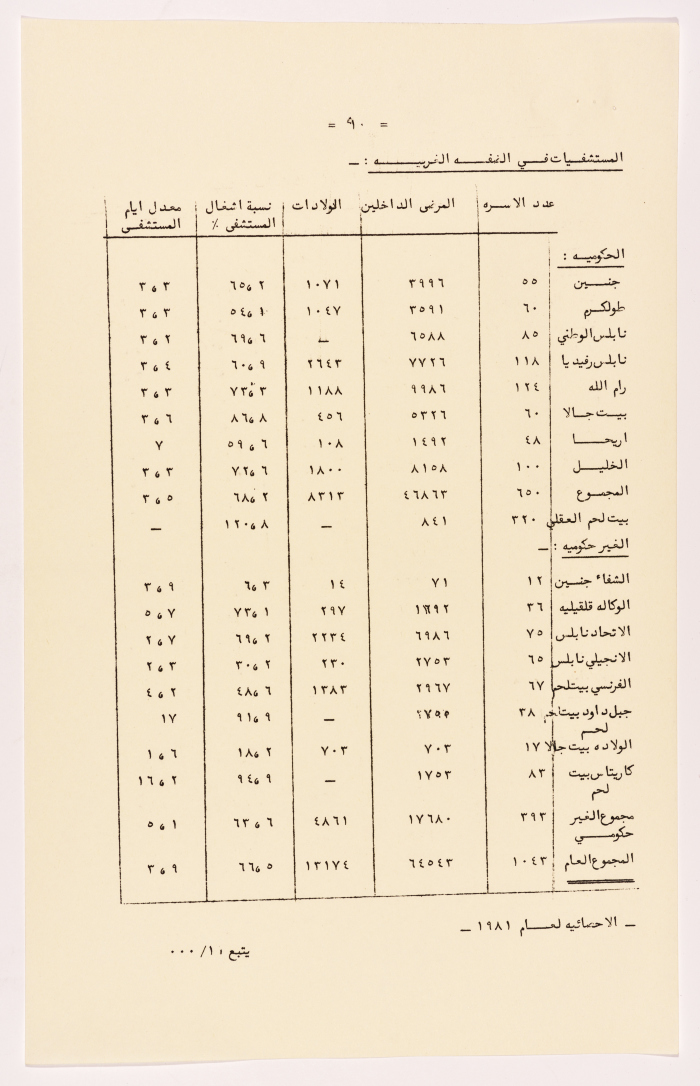 = ٩٠ =
المستشفيات في الضفه الغربيــــه : ـ
عدد الاسره المرضى الداخلين الولادات نسبة اشغال المستشفى ٪ معدل ايام المستشفى
الحكوميــه :
جنــين ٥٥ ٣٩٩٦ ١٠٧١ ٦٥٫٢ ٣٫٣
طولكـرم ٦٠ ٣٥٩١ ١٠٤٧ ٥٤٫١ ٣٫٣
نابلس الوطني ٨٥ ٦٥٨٨ ـ ٦٩٫٦ ٣٫٢
نابلس رفيديا ١١٨ ٧٧٢٦ ٢٦٤٣ ٦٠٫٩ ٣٫٤
رام الله ١٢٤ ٩٩٨٦ ١١٨٨ ٧٣٫٣ ٣٫٣
بيـت جـالا ٦٠ ٥٣٢٦ ٤٥٦ ٨٦٫٨ ٣٫٦
اريحـــا ٤٨ ١٤٩٢ ١٠٨ ٥٩٫٦ ٧
الخليــل ١٠٠ ٨١٥٨ ١٨٠٠ ٧٢٫٦ ٣٫٣
المجمـوع ٦٥٠ ٤٦٨٦٣ ٨٣١٣ ٦٨٫٢ ٣٫٥
بيت لحم العقلي ٣٢٠ ٨٤١ ـ ١٢٠٫٨ ـ
الغير حكوميه : ـ
الشفاء جنسين ١٢ ٧١ ١٤ ٦٫٣ ٣٫٩
الوكاله قلقيليه ٣٦ ٢٩٧ ٧٣٫١ ٥٫٧
الاتحاد نابلس ٧٥ ٦٩٨٦ ٢٢٣٤ ٦٩٫٢ ٢٫٧
الانجيلي نابلس ٦٥ ٢٧٥٣ ٢٣٠ ٣٠٫٢ ٢٫٣
الفرنسي بيت لحم ٦٧ ٢٩٦٧ ١٣٨٣ ٤٨٫٦ ٤٫٢
جبل داود بيت لحم ٣٨ ـ ٩١٫٩ ١٧
الولاده بيت جالا ١٧ ٧٠٣ ٧٠٣ ١٨٫٢ ١٫٦
كاريتاس بيت لحم ٨٣ ١٧٥٣ ـ ٩٤٫٩ ١٦٫٢
مجموع الغير حكومــي ٣٩٣ ١٧٦٨٠ ٤٨٦١ ٦٣٫٦ ٥٫١
المجموع العام ١٠٤٣ ٦٤٥٤٣ ١٣١٧٤ ٦٦٫٥ ٣٫٩
ـ الاحصائيه لعــام ١٩٨١ ـ
يتبع ١٠/٠٠٠